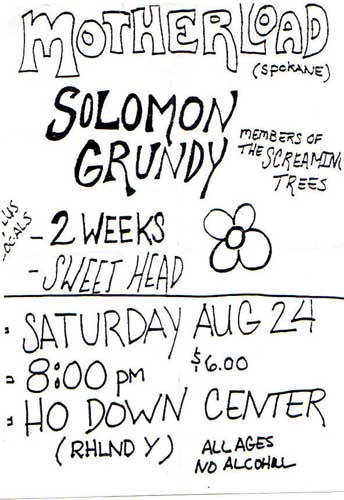 MOTHERLOAD
(SPOKANE)
SOLOMON
GRUNDY
MEMBERS OF
THE SCREAMING
TREES
- 2 WEEKS
- SWEET HEAD
SATURDAY AUG 24
8:00 PM
$6.00
HO DOWN CENTER
(RHLND Y)
ALL AGES
NO ALCOHOL